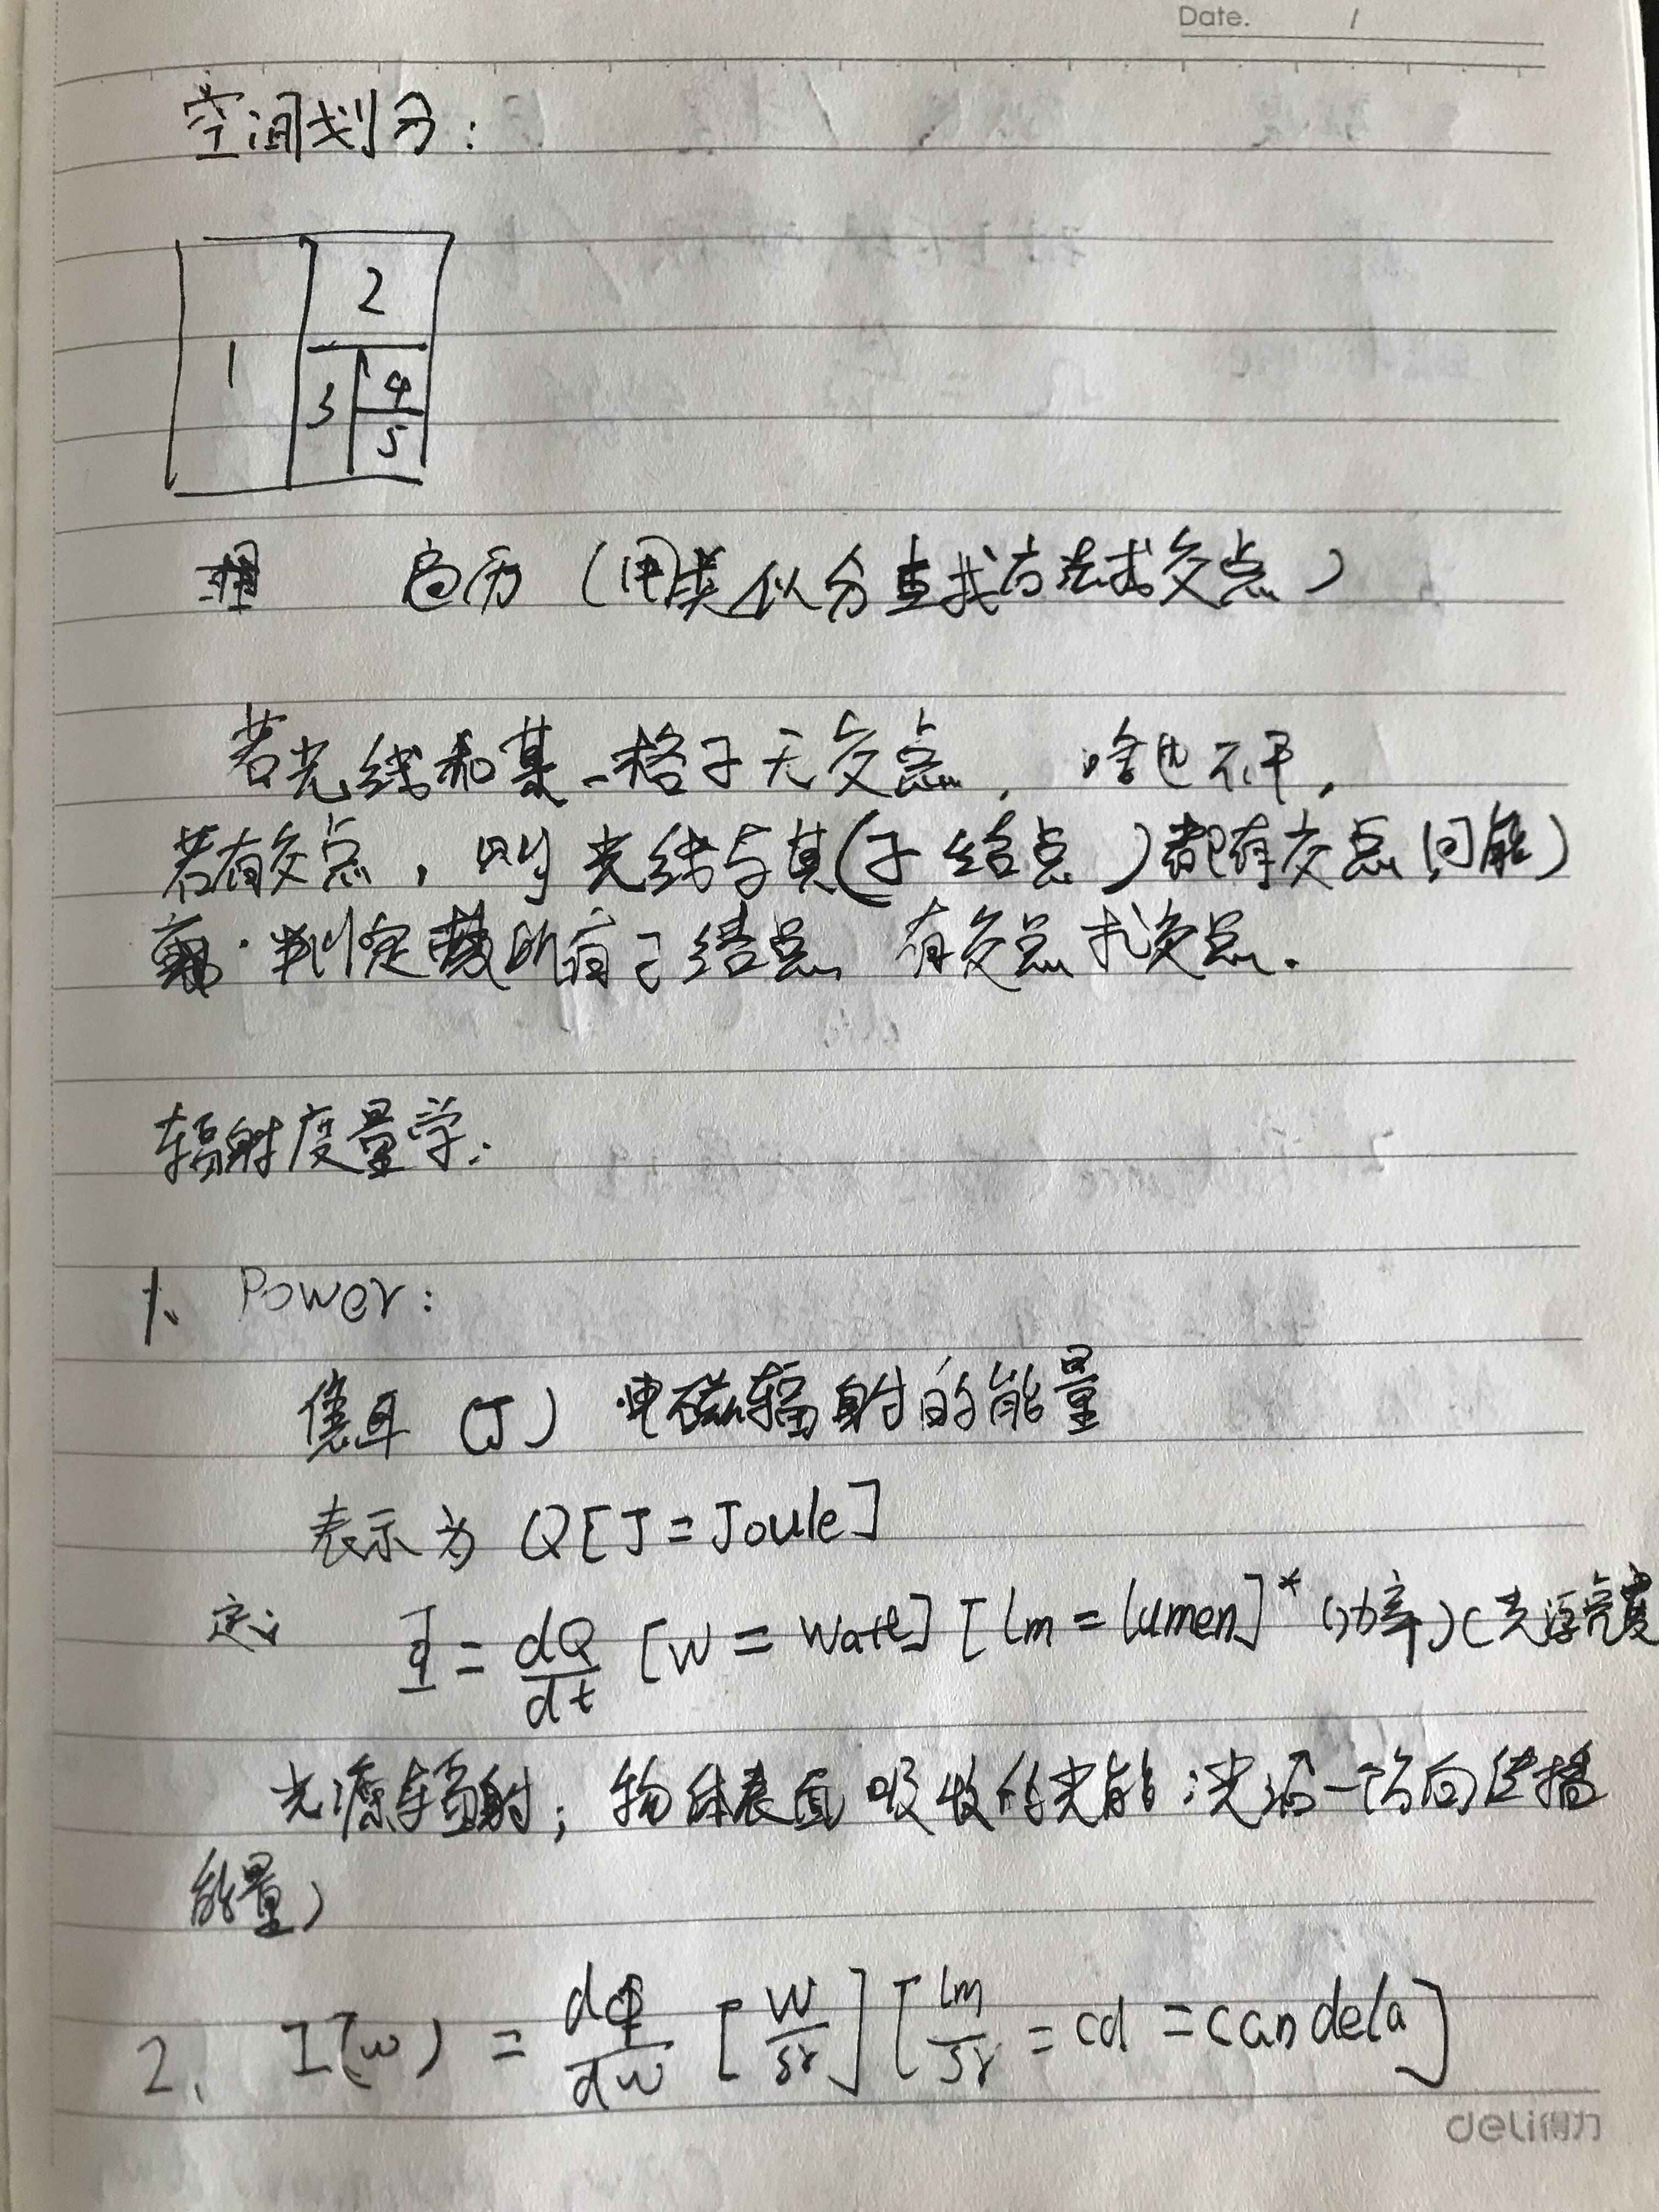 Date. /
空间划分:
1 2
3 4
5
(用类似分查找方法求交点)
若光线和某一格子无交点, 啥也不干,
若有交点, 则光线与其(子结点)都有交点(可能)
判定 所有子结点 有交点求交点.
辐射度量学:
1、Power:
(J) 电磁辐射的能量
表示为 Q[J=Joule]
定义 Φ = dQ/dt [W = Watt] [lm = lumen]* (功率)(光 亮度
光源辐射; 物体表面吸收的光能;光沿一方向传播
能量)
2. I(w) = dΦ/dw [W/sr] [lm/sr = cd = candela]
deli得力